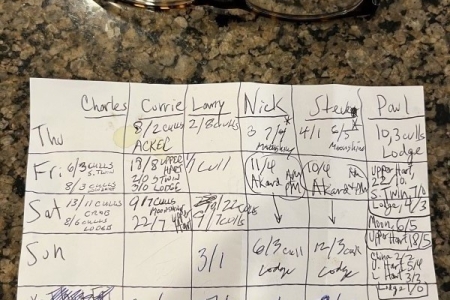 Charles Currie Larry Nick Steve Paul
Thu 8/2 culls 2/8 culls 3 7/4 4/1 6/5 10, 3 culls
ACKEC Moonshine Lodge
Fri 6/3 culls 18/8 upper 1 cull 11/4 AM 10/4 AA upper Hart
S. Twin Hart Akard PM Akard 22/10
8/3 culls 2/0 S Twin S Twin 7/0
3/0 Lodge Lodge, 4/3
Sat 13/11 culls 9/7 culls 9/22 culls
crab Moonshine 9/7 culls Moon 6/5
8/6 culls 22/7 upper Hart Upper Hart 18/5
Lodge
Sun 3/1 6/3 cull 12/3 cull 2/2
Lodge Lodge U. Hart 5/4
L Hart 3/2
Lodge 1/0